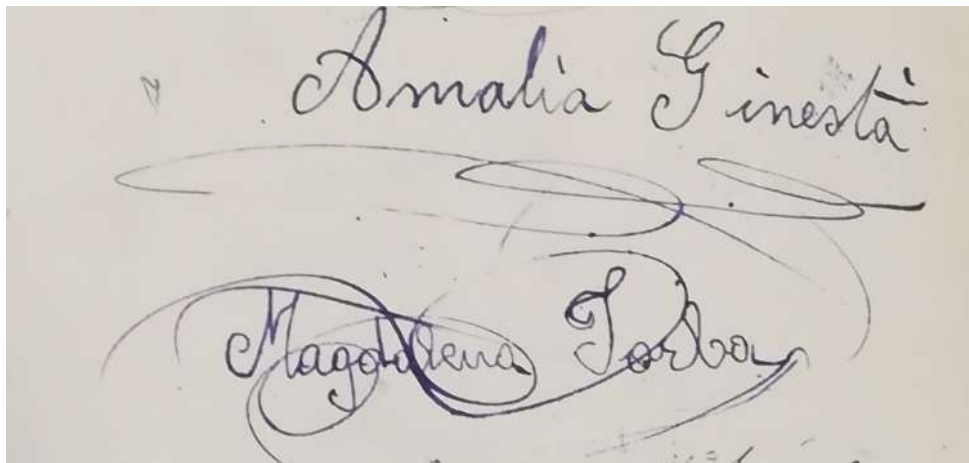 Amalia Ginestà
Magdalena